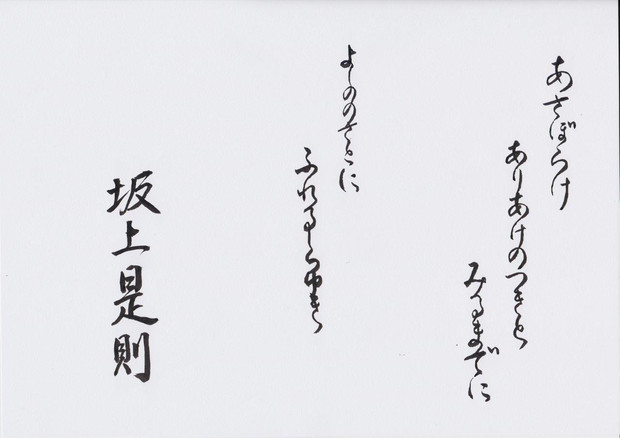 あさぼらけ
ありあけのつきと
みるまでに
よしののさとに
ふれるしらゆき
坂上是則